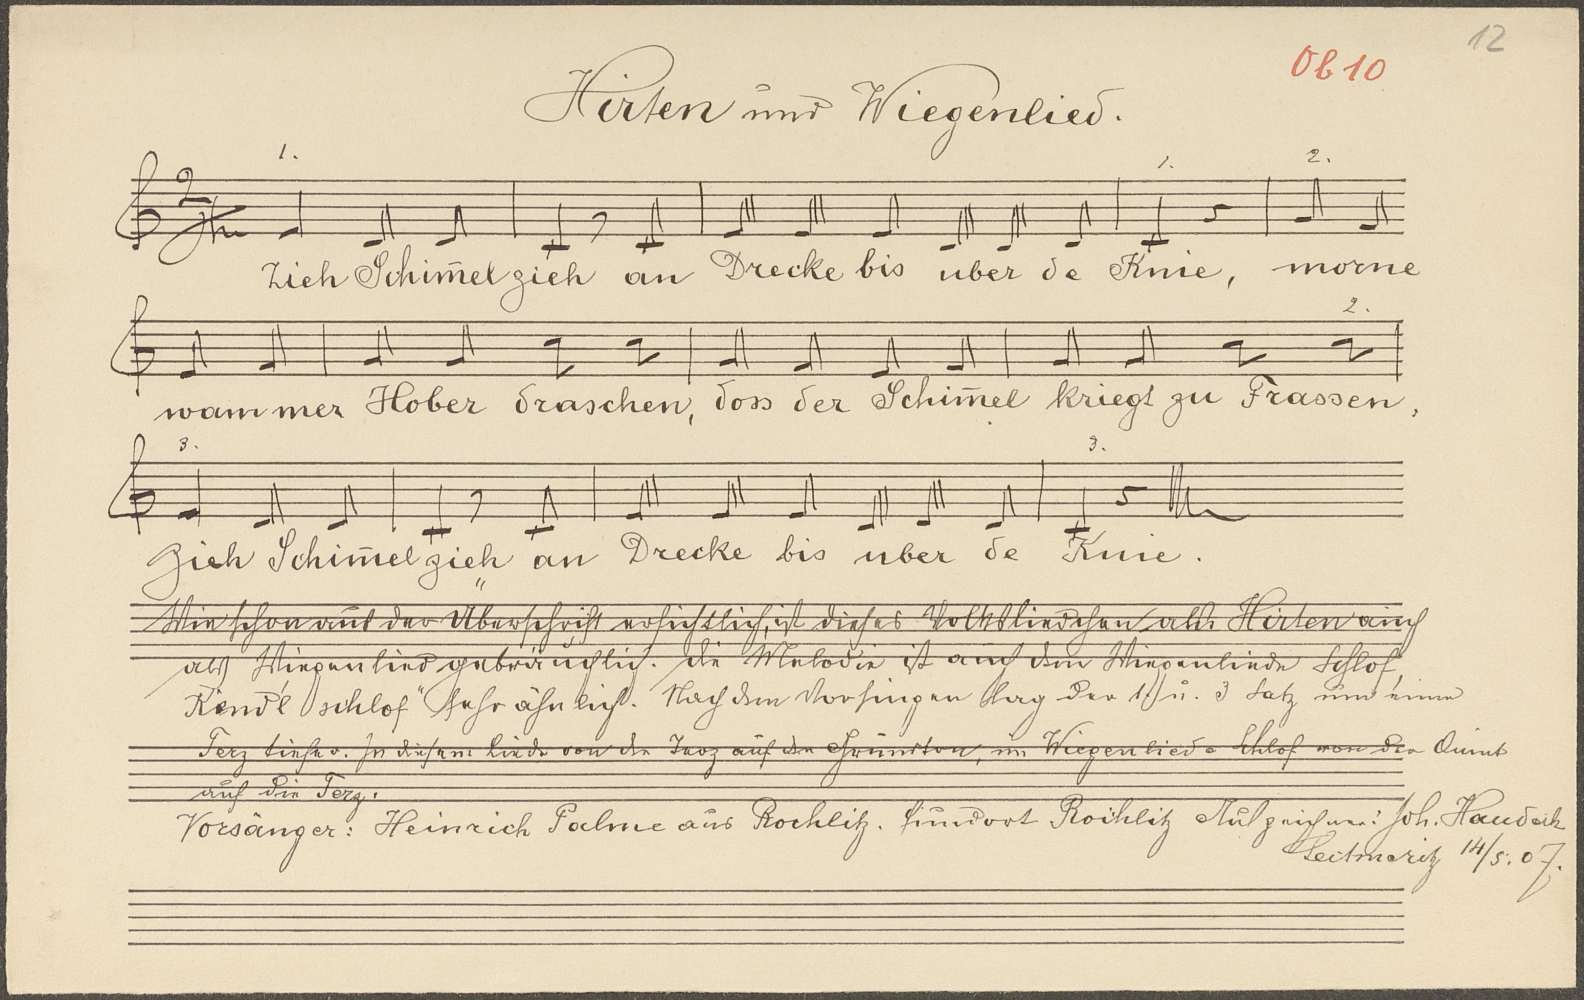 12
Ob 10
Hirten und Wiegenlied.
1. 1. 2.
Zieh Schim̄el zieh an Drecke bis uber de Knie, morne
2.
wammer Hober draschen, doss der Schim̄el kriegt zu Frassen,
3. 3.
Zieh Schim̄el zieh an Drecke bis uber de Knie.
Wie schon aus der Überschrift ersichtlich, ist dieses Volksliedchen als Hirten auch
als Wiegenlied gebräuchlich. Die Melodie ist auch dem Wiegenliede Schlof
Kendl schlof" sehr ähnlich. Nach dem Vorsingen lag der 1. u. 3 Satz um eine
Terz tiefer. In diesem Liede von der Terz auf den Grundton, im Wiegenliede Schlof von der Quint
auf die Terz.
Vorsänger: Heinrich Palme aus Rochlitz. Fundort Rochlitz Aufzeichner: Joh. Haudeck
Leitmeritz 14/5. 07.